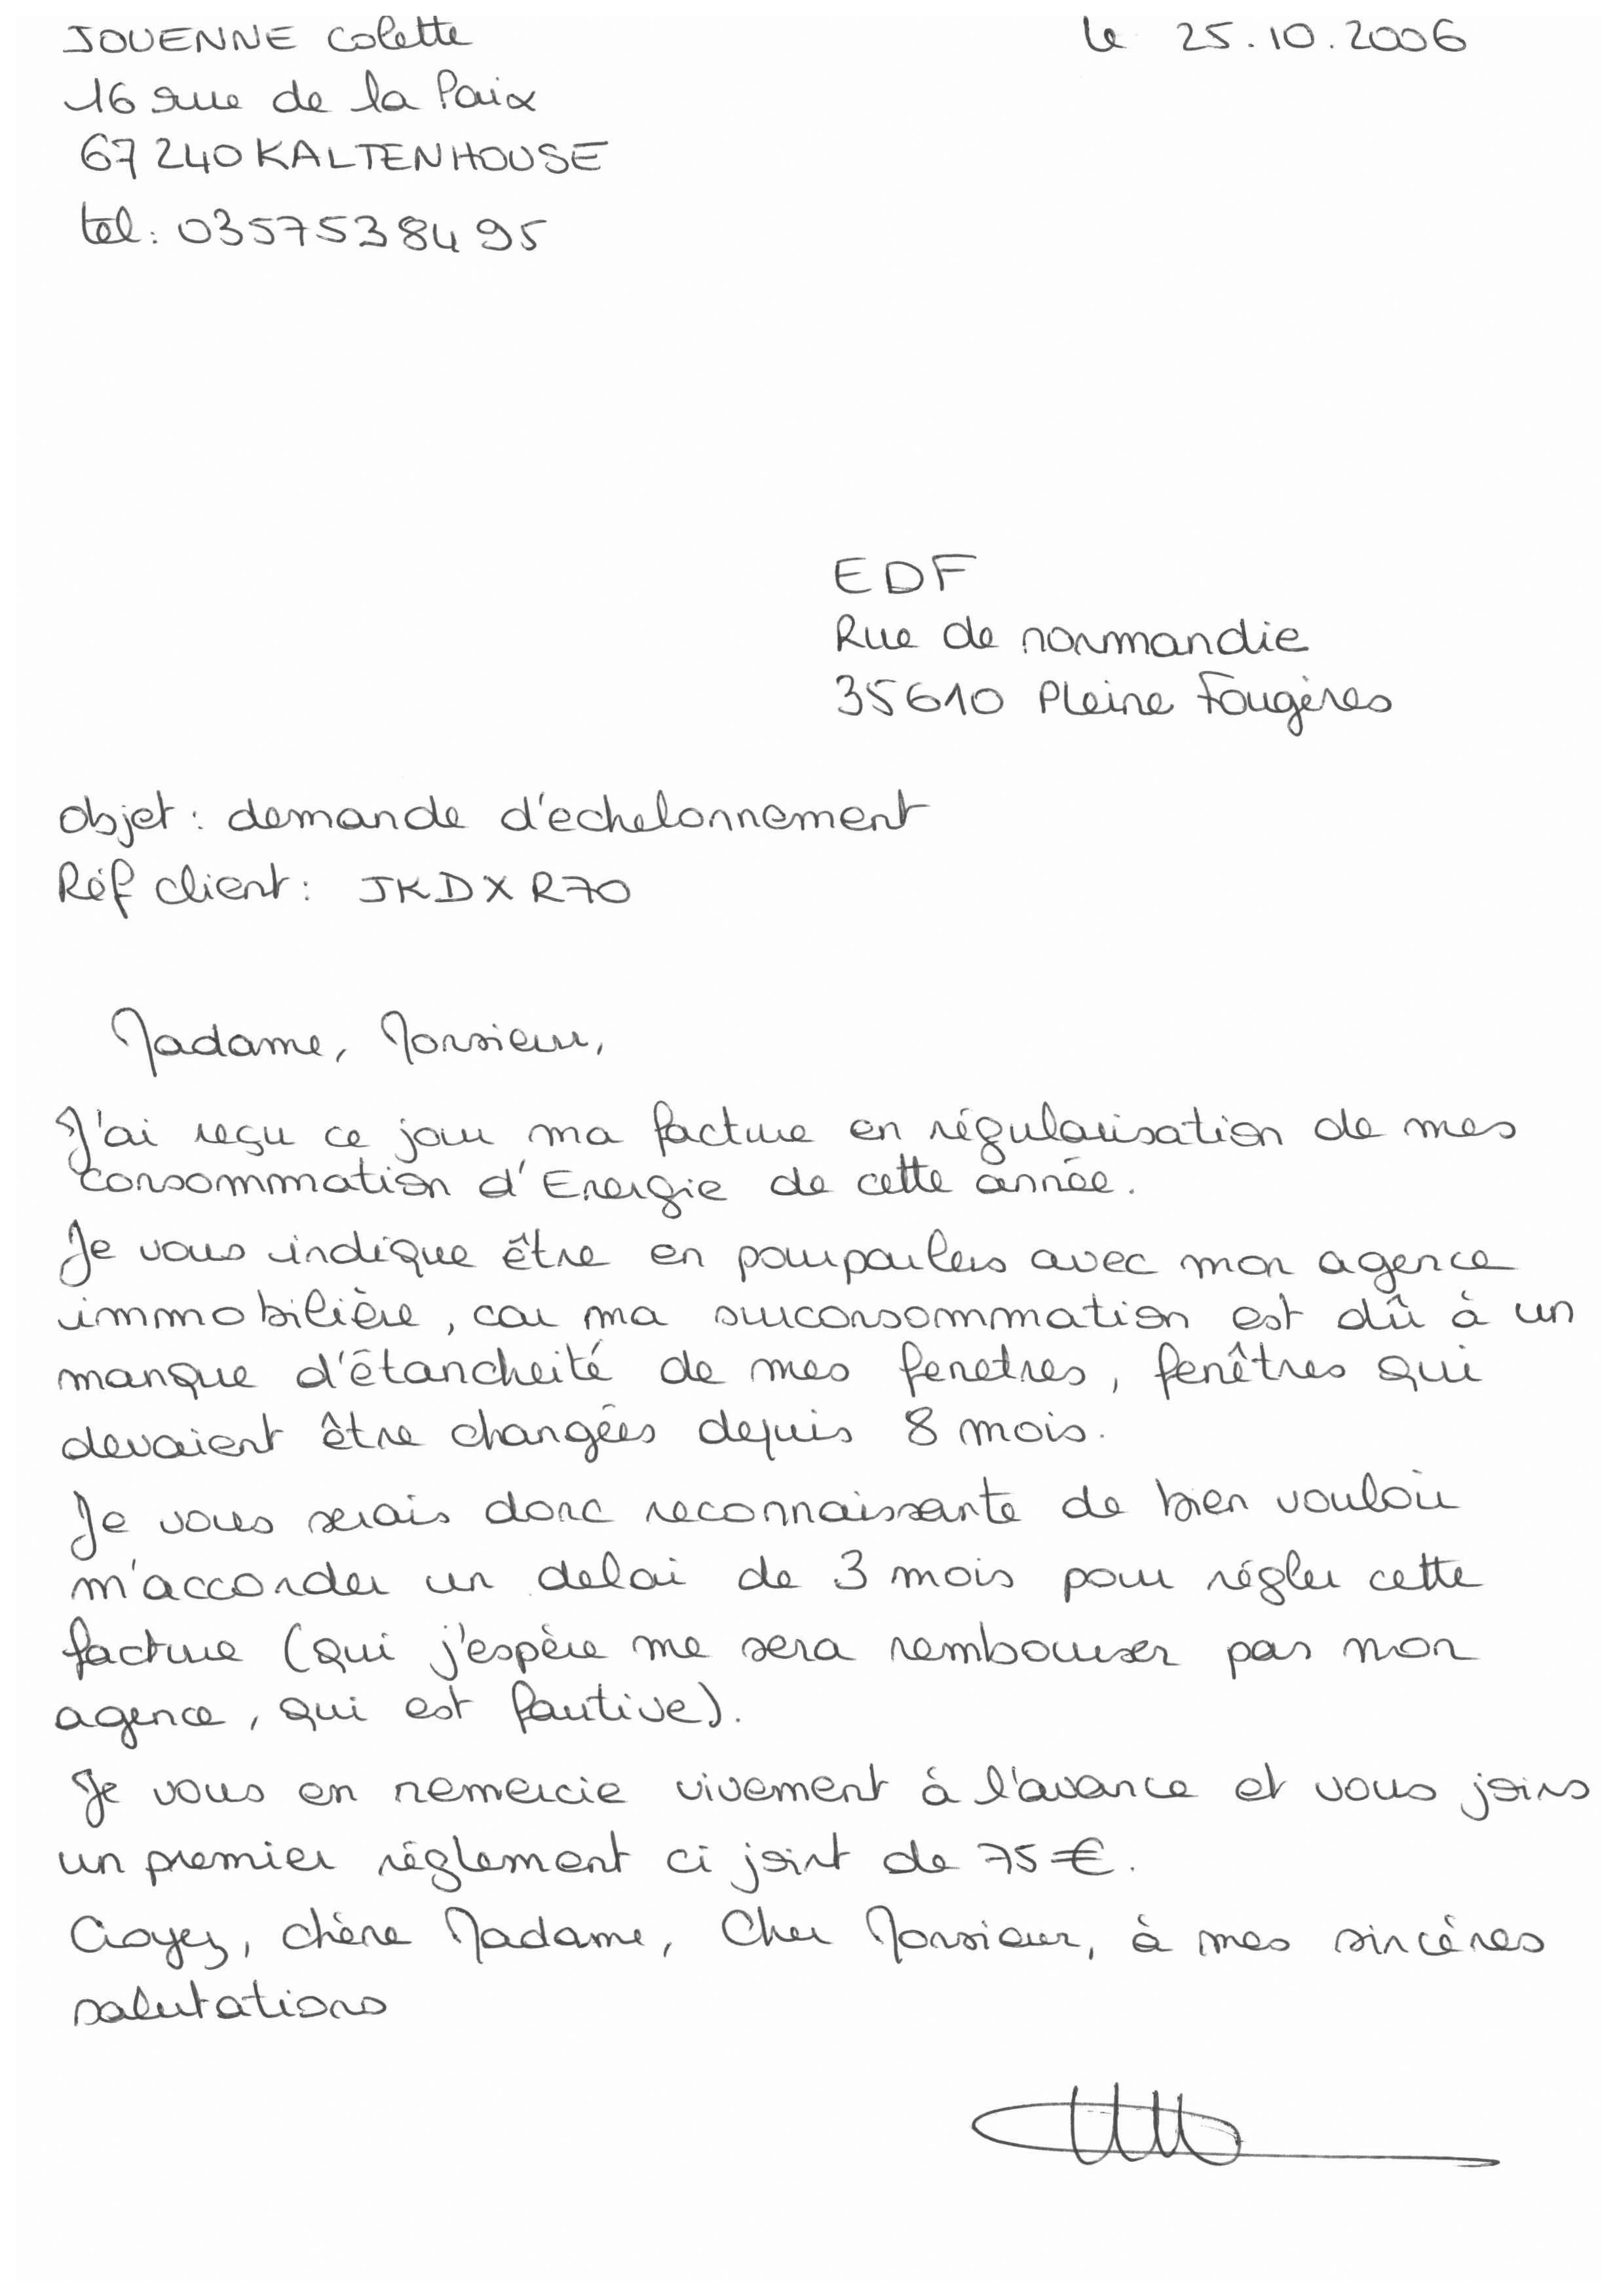 JOUENNE Colette
le 25.10.2006
16 rue de la Paix
67240 KALTENHOUSE
tel: 0357538495
EDF
Rue de normandie
35610 Pleine Fougères
Objet: demande d'echelonnement
Réf client: JKDXR70
Madame, Monsieur,
J'ai reçu ce jour ma facture en régularisation de mes
consommation d'Energie de cette année.
Je vous indique être en pourparlers avec mon agence
immobilière, car ma surconsommation est dû à un
manque d'étancheité de mes fenetres, fenêtres qui
devaient être changées depuis 8 mois.
Je vous serais donc reconnaissante de bien vouloir
m'accorder un delai de 3 mois pour régler cette
facture (qui j'espère me sera rembourser pas mon
agence, qui est fautive).
Je vous en remercie vivement à l'avance et vous joins
un premier réglement ci joint de 75€.
Croyez, chère Madame, Cher Monsieur, à mes sincéres
salutations